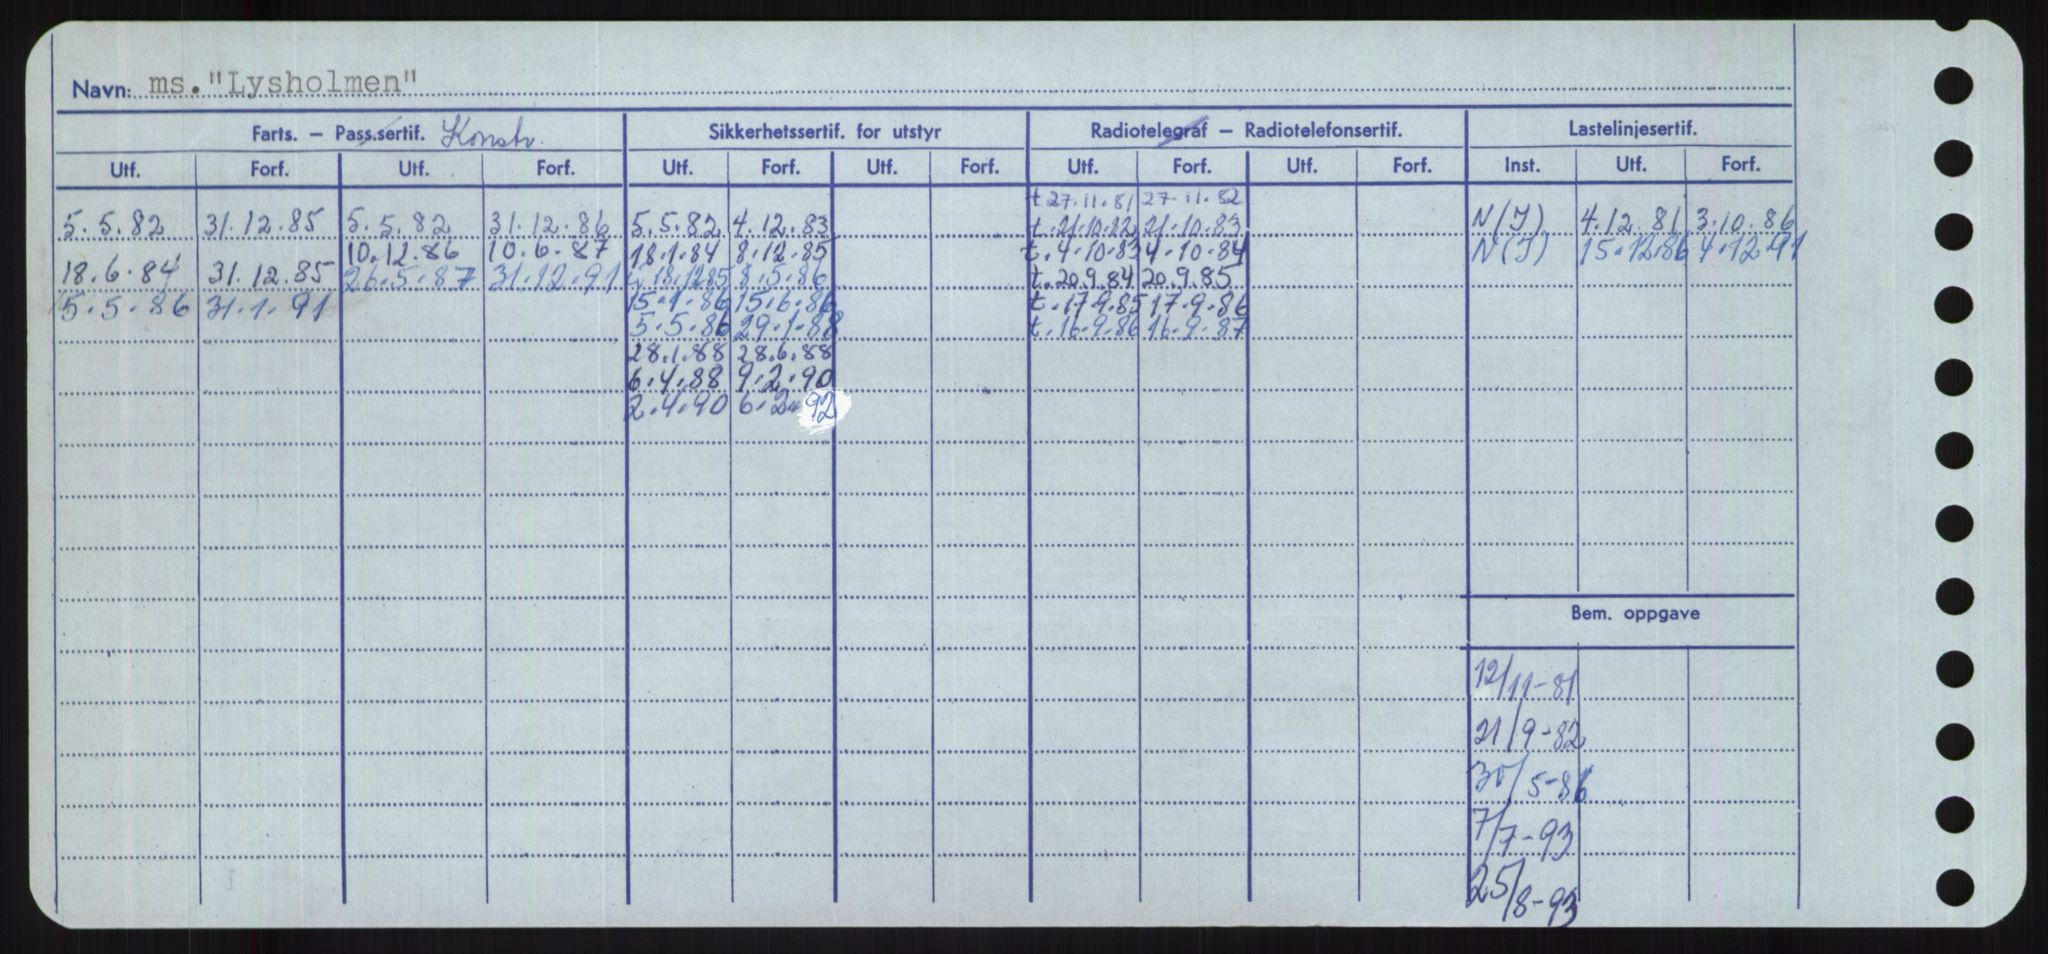 Navn: ms."Lysholmen"
Farts. – Pass.sertif. Konstr. Sikkerhetssertif. for utstyr Radiotelegraf – Radiotelefonsertif. Lastelinjesertif.
Utf. Forf. Utf. Forf. Utf. Forf. Utf. Forf. Utf. Forf. Utf. Forf. Inst. Utf. Forf.
t 27.11.81 27.11.82
5.5.82 31.12.85 5.5.82 31.12.86 5.5.82 4.12.83 t.21.10.82 21.10.83 N(I) 4.12.81 3.10.86
10.12.86 10.6.87 18.1.84 8.12.85 t.4.10.83 4.10.84 N(I) 15.12.86 4.12.91
18.6.84 31.12.85 26.5.87 31.12.91 18.12.85 8.5.86 t.20.9.84 20.9.85
5.5.86 31.1.91 15.1.86 15.6.86 t.17.9.85 17.9.86
5.5.86 29.1.88 t.16.9.86 16.9.87
28.1.88 28.6.88
6.4.88 9.2.90
2.4.90 6.2.92
Bem. oppgave
12/11-81
21/9-82
30/5-86
7/7-93
25/8-93